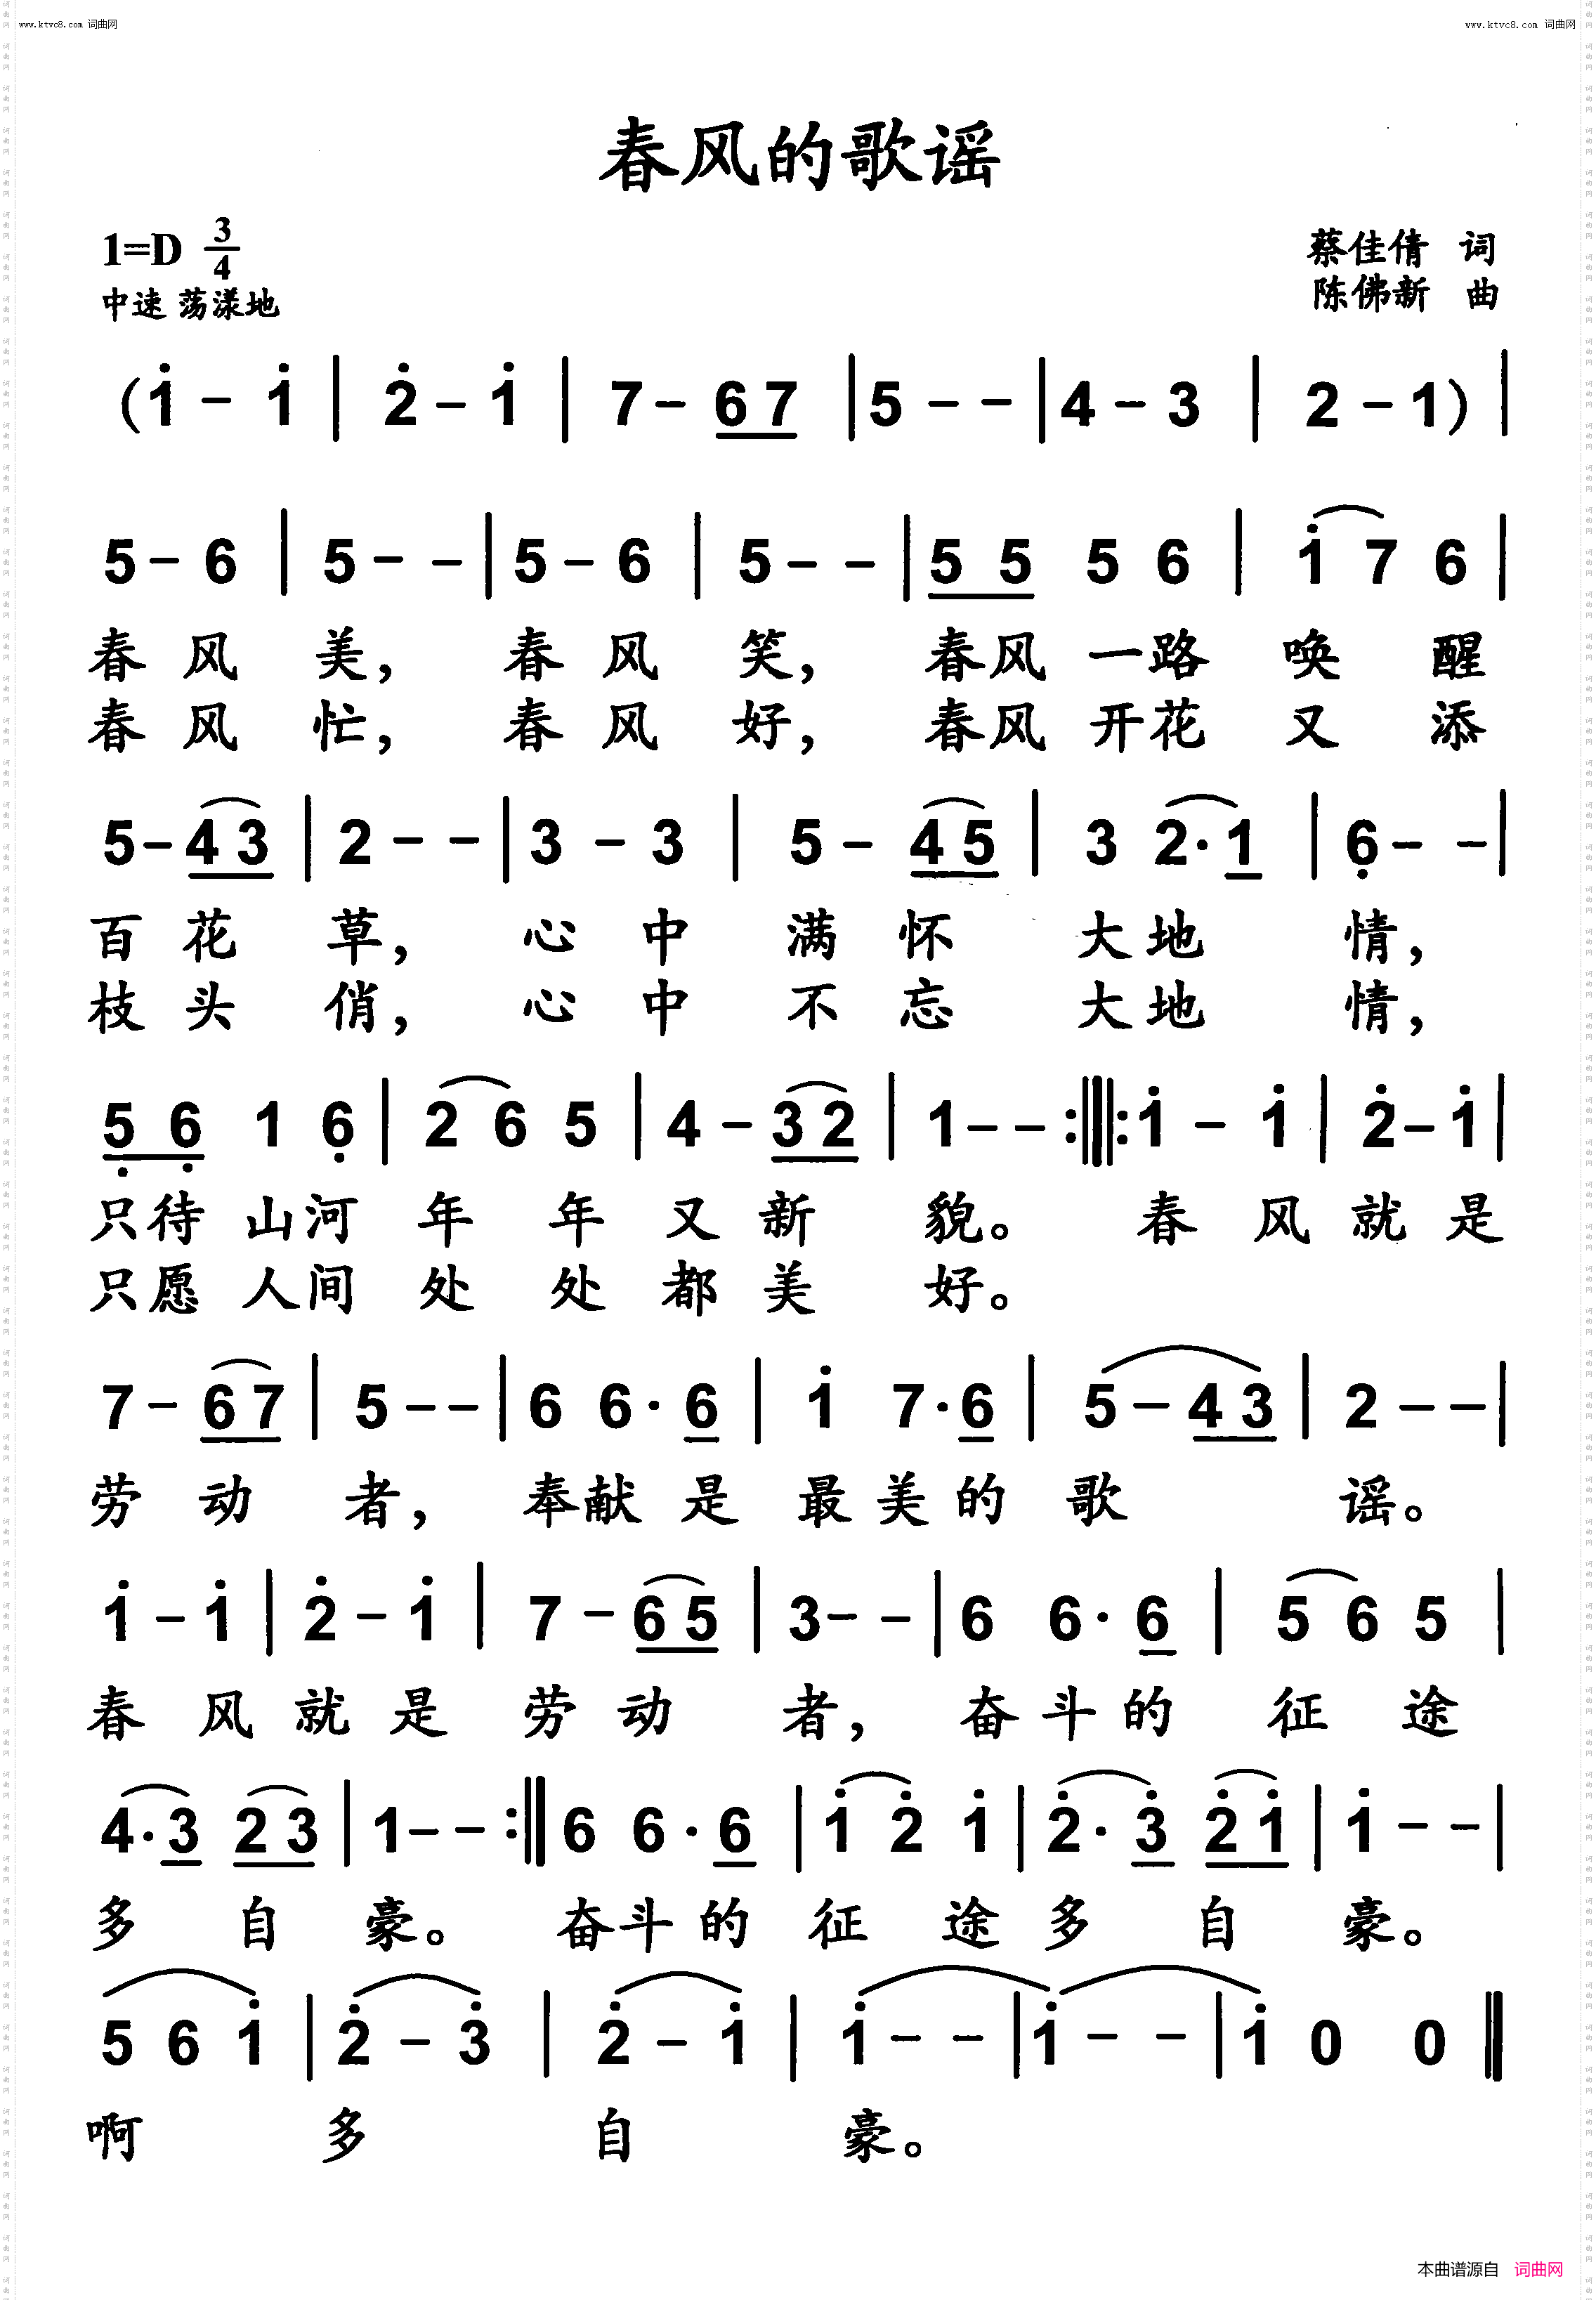 www.ktvc8.com 词曲网 www.ktvc8.com 词曲网
春风的歌谣
1=D 3/4 蔡佳倩 词
中速 荡漾地 陈佛新 曲
(1̇ - 1̇ | 2̇ - 1̇ | 7 - 6 7 | 5 - - | 4 - 3 | 2 - 1) |
5 - 6 | 5 - - | 5 - 6 | 5 - - | 5 5 5 6 | 1̇ 7 6 |
春 风 美， 春 风 笑， 春风 一路 唤 醒
春 风 忙， 春 风 好， 春风 开花 又 添
5 - 4 3 | 2 - - | 3 - 3 | 5 - 4 5 | 3 2· 1 | 6̣ - - |
百 花 草， 心 中 满 怀 大地 情，
枝 头 俏， 心 中 不 忘 大地 情，
5̣ 6̣ 1 6̣ | 2 6 5 | 4 - 3 2 | 1 - - :‖: 1̇ - 1̇ | 2̇ - 1̇ |
只待 山河 年 年 又 新 貌。 春 风 就 是
只愿 人间 处 处 都 美 好。
7 - 6 7 | 5 - - | 6 6· 6 | 1̇ 7· 6 | 5 - 4 3 | 2 - - |
劳 动 者， 奉献 是 最 美 的 歌 谣。
1̇ - 1̇ | 2̇ - 1̇ | 7 - 6 5 | 3 - - | 6 6· 6 | 5 6 5 |
春 风 就 是 劳 动 者， 奋 斗 的 征 途
4· 3 2 3 | 1 - - :‖ 6 6· 6 | 1̇ 2̇ 1̇ | 2̇· 3̇ 2̇ 1̇ | 1̇ - - |
多 自 豪。 奋斗 的 征 途 多 自 豪。
5 6 1̇ | 2̇ - 3̇ | 2̇ - 1̇ | 1̇ - - | 1̇ - - | 1̇ 0 0 ‖
啊 多 自 豪。
本曲谱源自 词曲网